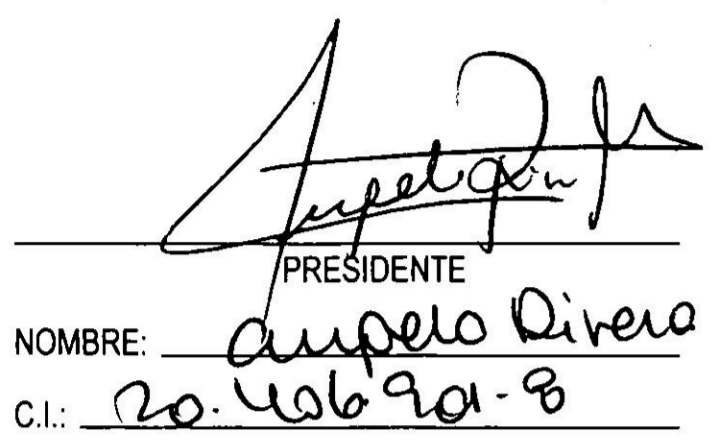 PRESIDENTE
NOMBRE: Angelo Rivera
C.I.: 20.406.901-8